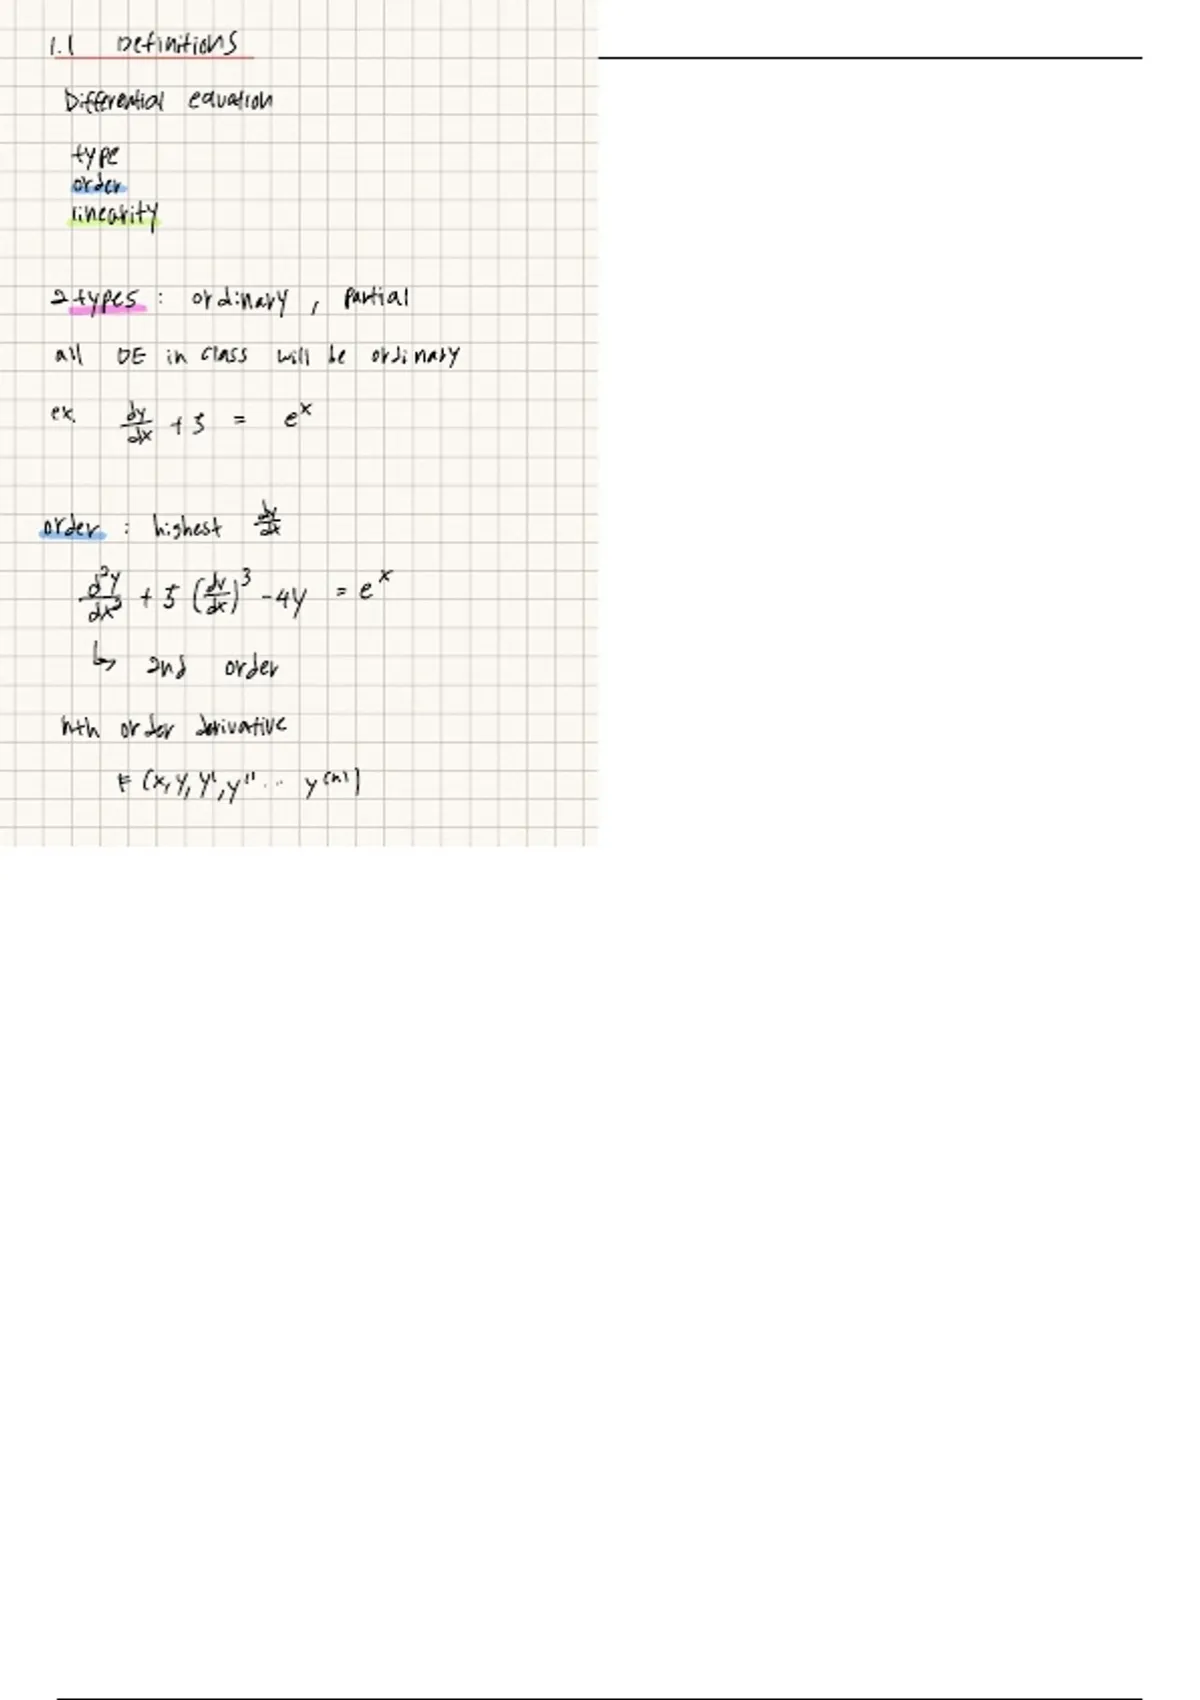 1.1 Definitions
Differential equation
type
order
linearity
2 types : ordinary , Partial
all DE in class will be ordinary
ex. dy/dx + 5 = e^x
order : highest dy/dx
d²y/dx² + 5 (dy/dx)³ - 4y = e^x
↳ 2nd order
nth order derivative
F (x, y, y', y'' ... y^(n))